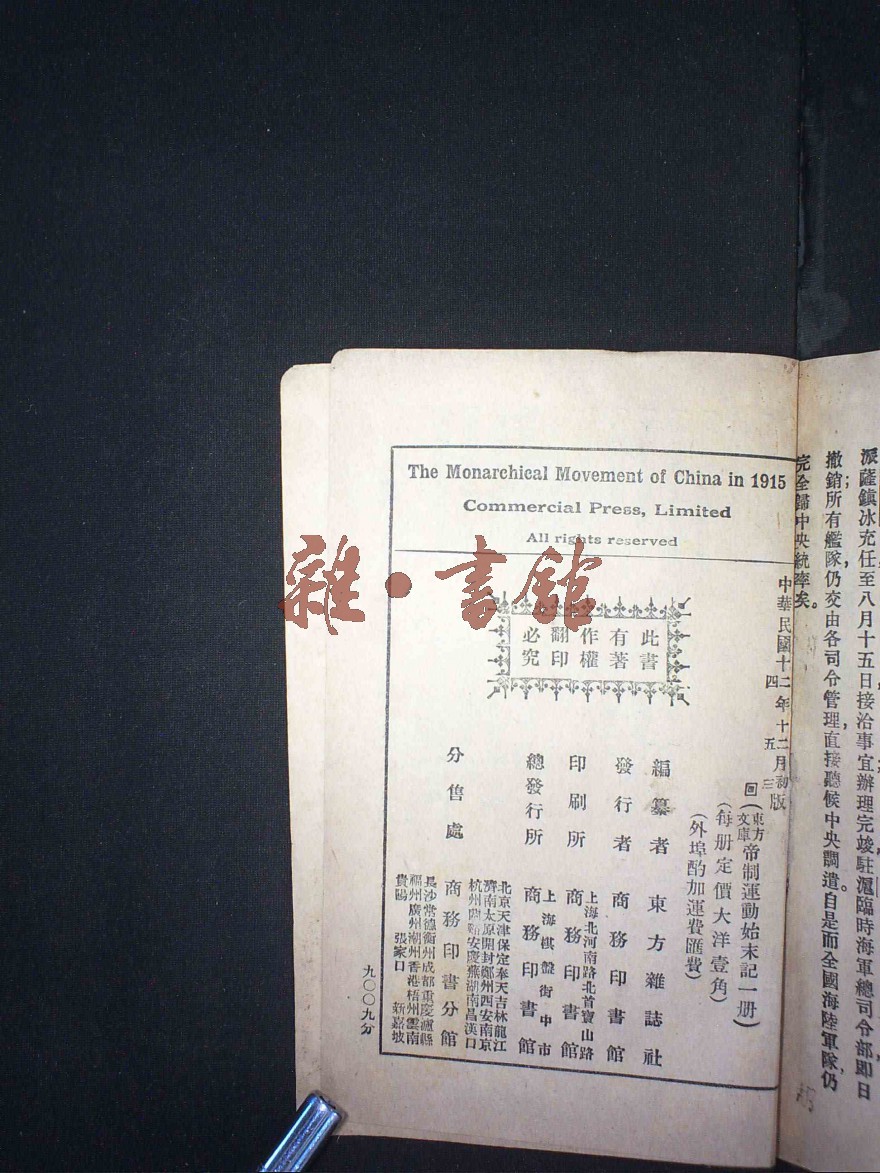 派薩鎮冰充任至八月十五日接洽事宜辦理完竣駐滬臨時海軍總司令部即日
撤銷所有艦隊仍交由各司令管理直接聽候中央調遣自是而全國海陸軍隊仍
完全歸中央統率矣。
The Monarchical Movement of China in 1915
Commercial Press, Limited
All rights reserved
雜・書館
中華民國十二年十二月初版
四 五 三
此書
有著
作權
翻印
必究
回(東方文庫)帝制運動始末記一册)
(每册定價大洋壹角)
(外埠酌加運費匯費)
編纂者 東方雜誌社
發行者 商務印書館
印刷所 上海北河南路北首寶山路
商務印書館
總發行所 上海棋盤街中市
商務印書館
分售處 北京天津保定奉天吉林龍江
濟南太原開封鄭州西安南京
杭州蘭谿安慶蕪湖南昌漢口
商務印書分館
長沙常德衡州成都重慶瀘縣
福州廣州潮州香港梧州雲南
貴陽 張家口 新嘉坡
九〇〇九分